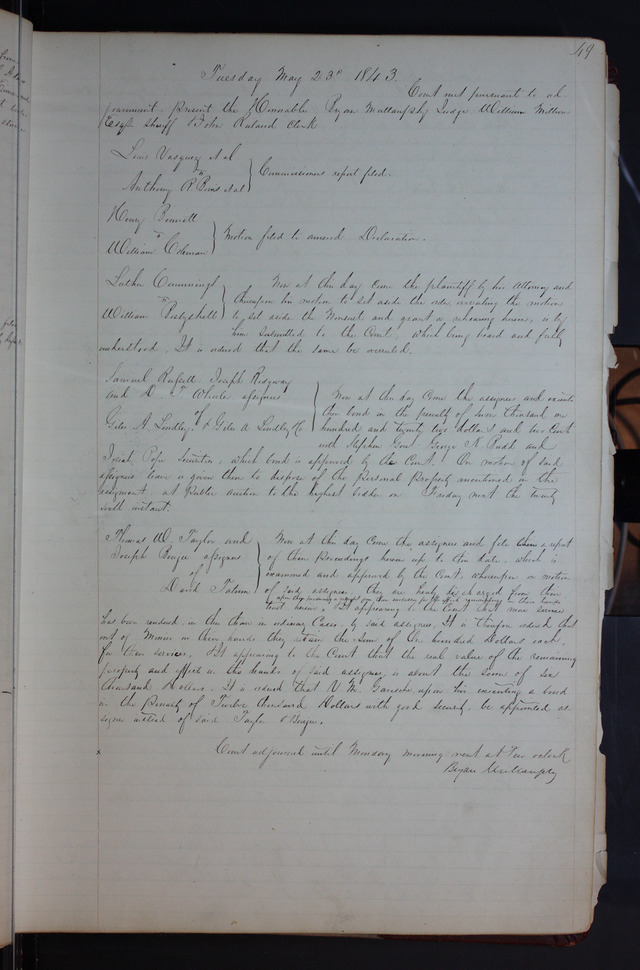 49
Tuesday May 23d 1843.
Court met pursuant to ad
journment. present the Honorable Bryan Mullanphy Judge William Milburn
Esqr Sheriff & John Ruland Clerk
Louis Vasquez et al
vs
Anthony R Bevis et al
Commissioners report filed.
Henry Bennett
vs
William Coleman
Motion filed to amend Declaration.
Luther Cummings
vs
William
Now at this day come the plaintiff by his Attorney and
thereupon his motion to set aside the order overruling the motion
to set aside the Nonsuit and grant a rehearing herein, is by
him submitted to the Court, which being heard and fully
understood. It is ordered that the same be overruled.
Samuel Russell Joseph Ridgway
and D. T Wheeler assignees
of
Giles A. Lindley & Giles A Lindley &Co
Now at this day Come the assignees and execute
their bond in the penalty of Seven thousand one
hundred and twenty two dollars and two Cents
with Stephen Gent George N. Rush and
Josiah Pope Securities, which bond is approved by the Court. On motion of said
assignees leave is given them to dispose of the personal property mentioned in the
assignment, at Public auction to the highest bidder on Friday next the twenty
sixth instant.
Thomas W. Taylor and
Joseph Bouju assignees
of
David Tatum
Now at this day Come the assignees and file a report
of their proceedings herein up to this date, which is
examined and approved by the Court, whereupon on motion
of said assignees, they are hereby discharged from their
trust herein, & It appearing to the Court that more service
has been rendered, in this than in ordinary Cases, by said assignees, It is therefore ordered that
out of Monies in their hands they retain the sum of One hundred Dollars each,
for their services. & It appearing to the Court that the real value of the remaining
property and effects in the hands of said assignees, is about the sum of six
thousand Dollars. It is ordered that V. M. Garesche upon his executing a bond
in the Penalty of Twelve thousand Dollars with good security, be appointed as
signee instead of said Taylor & Bouju.
Court adjourned until Monday morning next at Ten oclock
Bryan Mullanphy